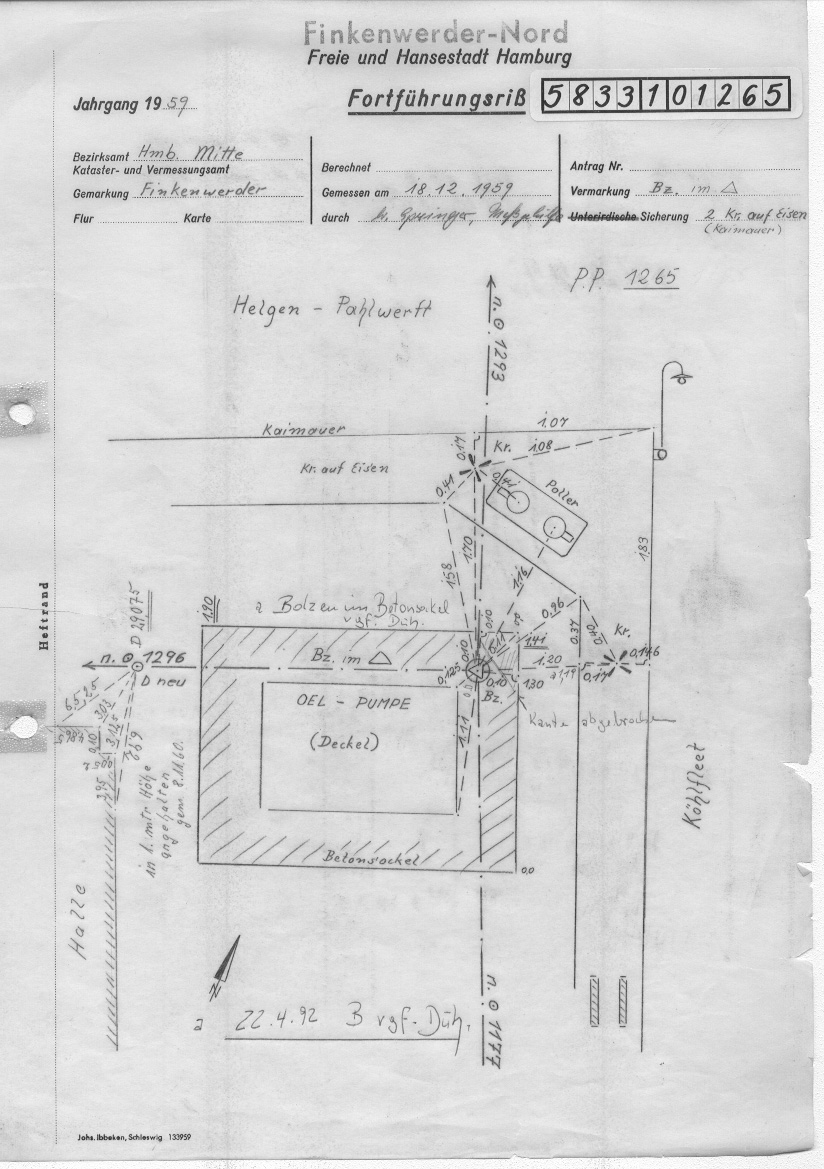 Finkenwerder-Nord
Freie und Hansestadt Hamburg
Jahrgang 1959
Fortführungsriß
5833101265
Bezirksamt Hmb. Mitte
Kataster- und Vermessungsamt
Gemarkung Finkenwerder
Flur Karte
Berechnet
Gemessen am 18.12.1959
durch
Antrag Nr.
Vermarkung Bz. im △
Unterirdische Sicherung 2 Kr. auf Eisen
(Kaimauer)
P.P. 1265
Helgen - Pahlwerft
n. ⊙ 1293
Kaimauer
1.07
0.17
Kr.
1.08
Kr. auf Eisen
0.41
0.41
Poller
1.58
1.70
1.16
1.83
0.96
0.37
0.40
Kr.
0.146
Heftrand
D 29075
1.90
a Bolzen im Betonsockel
vgf. Düh.
0.10
0.10
0.11
1.41
1.20
a 1,19
0.17
n. ⊙ 1296
D neu
Bz. im △
0.125
0.10
1.30
Bz.
Kante abgebrochen
OEL - PUMPE
(Deckel)
1.11
6.525
3.03
4.865
0.10
3.125
7.500
7.69
3.95
in 1. mtr Höhe
angehalten
gem. 8.11.60.
Köhlfleet
Betonsockel
0,0
Halle
N
a 22.4.92 B vgf. Düh.
n. ⊙ 1177
Johs. Ibbeken, Schleswig 133959